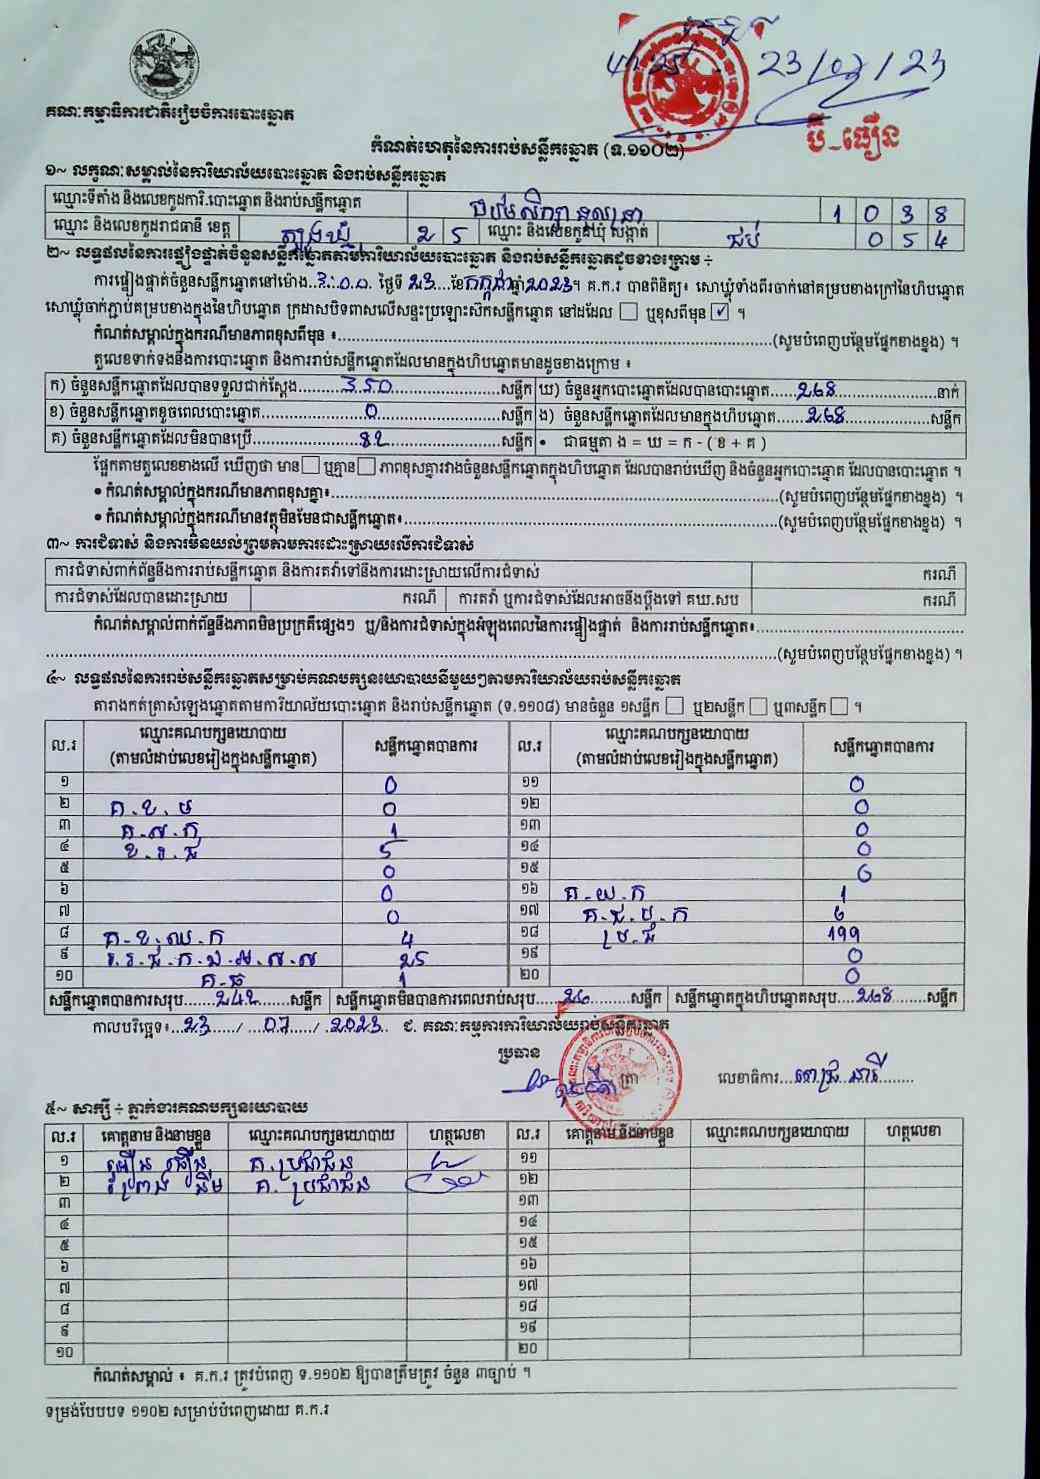 23/07/23
គណៈកម្មាធិការជាតិរៀបចំការបោះឆ្នោត
ប៊ី_ធឿន
កំណត់ហេតុនៃការរាប់សន្លឹកឆ្នោត (ទ.១១០២)
១~ លក្ខណៈសម្គាល់នៃការិយាល័យបោះឆ្នោត និងរាប់សន្លឹកឆ្នោត
ឈ្មោះទីតាំង និងលេខកូដការិ.បោះឆ្នោត និងរាប់សន្លឹកឆ្នោត 1 0 3 8
ឈ្មោះ និងលេខកូដរាជធានី ខេត្ត ត្បូងឃ្មុំ 2 5 ឈ្មោះ និងលេខកូដឃុំ សង្កាត់ ជប់ 0 5 4
២~ លទ្ធផលនៃការផ្ទៀងផ្ទាត់ចំនួនសន្លឹកឆ្នោតតាមការិយាល័យបោះឆ្នោត និងរាប់សន្លឹកឆ្នោតដូចខាងក្រោម ÷
ការផ្ទៀងផ្ទាត់ចំនួនសន្លឹកឆ្នោតនៅម៉ោង..3:00.. ថ្ងៃទី 23...ខែកក្កដាឆ្នាំ2023។ គ.ក.រ បានពិនិត្យ៖ សោឃ្លុំទាំងពីរចាក់នៅគម្របខាងក្រៅនៃហិបឆ្នោត
សោឃ្លុំចាក់ភ្ជាប់គម្របខាងក្នុងនៃហិបឆ្នោត ក្រដាសបិទពាសលើសន្ទះប្រឡោះស៊កសន្លឹកឆ្នោត នៅដដែល ☐ ឬខុសពីមុន ☑ ។
កំណត់សម្គាល់ក្នុងករណីមានភាពខុសពីមុន ៖..........(សូមបំពេញបន្ថែមផ្នែកខាងខ្នង) ។
តួលេខទាក់ទងនឹងការបោះឆ្នោត និងការរាប់សន្លឹកឆ្នោតដែលមានក្នុងហិបឆ្នោតមានដូចខាងក្រោម ៖
ក) ចំនួនសន្លឹកឆ្នោតដែលបានទទួលជាក់ស្តែង..........350..........សន្លឹក ឃ) ចំនួនអ្នកបោះឆ្នោតដែលបានបោះឆ្នោត......268..........នាក់
ខ) ចំនួនសន្លឹកឆ្នោតខូចពេលបោះឆ្នោត..........0..........សន្លឹក ង) ចំនួនសន្លឹកឆ្នោតដែលមានក្នុងហិបឆ្នោត......268..........សន្លឹក
គ) ចំនួនសន្លឹកឆ្នោតដែលមិនបានប្រើ..........82..........សន្លឹក • ជាធម្មតា ង = ឃ = ក - ( ខ + គ )
ផ្អែកតាមតួលេខខាងលើ ឃើញថា មាន ☐ ឬគ្មាន ☐ ភាពខុសគ្នារវាងចំនួនសន្លឹកឆ្នោតក្នុងហិបឆ្នោត ដែលបានរាប់ឃើញ និងចំនួនអ្នកបោះឆ្នោត ដែលបានបោះឆ្នោត ។
• កំណត់សម្គាល់ក្នុងករណីមានភាពខុសគ្នា៖..........(សូមបំពេញបន្ថែមផ្នែកខាងខ្នង) ។
• កំណត់សម្គាល់ក្នុងករណីមានវត្ថុមិនមែនជាសន្លឹកឆ្នោត៖..........(សូមបំពេញបន្ថែមផ្នែកខាងខ្នង) ។
៣~ ការជំទាស់ និងការមិនយល់ព្រមតាមការដោះស្រាយលើការជំទាស់
ការជំទាស់ពាក់ព័ន្ធនឹងការរាប់សន្លឹកឆ្នោត និងការតវ៉ាទៅនឹងការដោះស្រាយលើការជំទាស់ ករណី
ការជំទាស់ដែលបានដោះស្រាយ ករណី ការតវ៉ា ឬការជំទាស់ដែលអាចនឹងប្តឹងទៅ គឃ.សប ករណី
កំណត់សម្គាល់ពាក់ព័ន្ធនឹងភាពមិនប្រក្រតីផ្សេងៗ ឬ/និងការជំទាស់ក្នុងអំឡុងពេលនៃការផ្ទៀងផ្ទាត់ និងការរាប់សន្លឹកឆ្នោត៖..........
..........(សូមបំពេញបន្ថែមផ្នែកខាងខ្នង) ។
៤~ លទ្ធផលនៃការរាប់សន្លឹកឆ្នោតសម្រាប់គណបក្សនយោបាយនីមួយៗតាមការិយាល័យរាប់សន្លឹកឆ្នោត
តារាងកត់ត្រាសំឡេងឆ្នោតតាមការិយាល័យបោះឆ្នោត និងរាប់សន្លឹកឆ្នោត (ទ.១១០៨) មានចំនួន ១សន្លឹក ☐ ឬ២សន្លឹក ☐ ឬ៣សន្លឹក ☐ ។
ល.រ ឈ្មោះគណបក្សនយោបាយ (តាមលំដាប់លេខរៀងក្នុងសន្លឹកឆ្នោត) សន្លឹកឆ្នោតបានការ ល.រ ឈ្មោះគណបក្សនយោបាយ (តាមលំដាប់លេខរៀងក្នុងសន្លឹកឆ្នោត) សន្លឹកឆ្នោតបានការ
១ 0 ១១ 0
២ គ.ខ.ប 0 ១២ 0
៣ គ.ស.ក 1 ១៣ 0
៤ ខ.រ.ជ 5 ១៤ 0
៥ 0 ១៥ 6
៦ 0 ១៦ គ.យ.ក 1
៧ 0 ១៧ គ.ជ.ប.ក 6
៨ គ.ខ.ឈ.ក 4 ១៨ ប្រ.ជ 199
៩ 25 ១៩ 0
១០ គ.ធ 1 ២០ 0
សន្លឹកឆ្នោតបានការសរុប.......242.......សន្លឹក សន្លឹកឆ្នោតមិនបានការពេលរាប់សរុប.....26........សន្លឹក សន្លឹកឆ្នោតក្នុងហិបឆ្នោតសរុប....268........សន្លឹក
កាលបរិច្ឆេទ៖...23....../ ...07...../ .2023.. ជ. គណៈកម្មការការិយាល័យរាប់សន្លឹកឆ្នោត
ប្រធាន
ត្រា លេខាធិការ...
៥~ សាក្សី ÷ ភ្នាក់ងារគណបក្សនយោបាយ
ល.រ គោត្តនាម និងនាមខ្លួន ឈ្មោះគណបក្សនយោបាយ ហត្ថលេខា ល.រ គោត្តនាម និងនាមខ្លួន ឈ្មោះគណបក្សនយោបាយ ហត្ថលេខា
១ គ.ប្រជាជន ១១
២ គ. ប្រជាជន ១២
៣ ១៣
៤ ១៤
៥ ១៥
៦ ១៦
៧ ១៧
៨ ១៨
៩ ១៩
១០ ២០
កំណត់សម្គាល់ ៖ គ.ក.រ ត្រូវបំពេញ ទ.១១០២ ឱ្យបានត្រឹមត្រូវ ចំនួន ៣ច្បាប់ ។
ទម្រង់បែបបទ ១១០២ សម្រាប់បំពេញដោយ គ.ក.រ